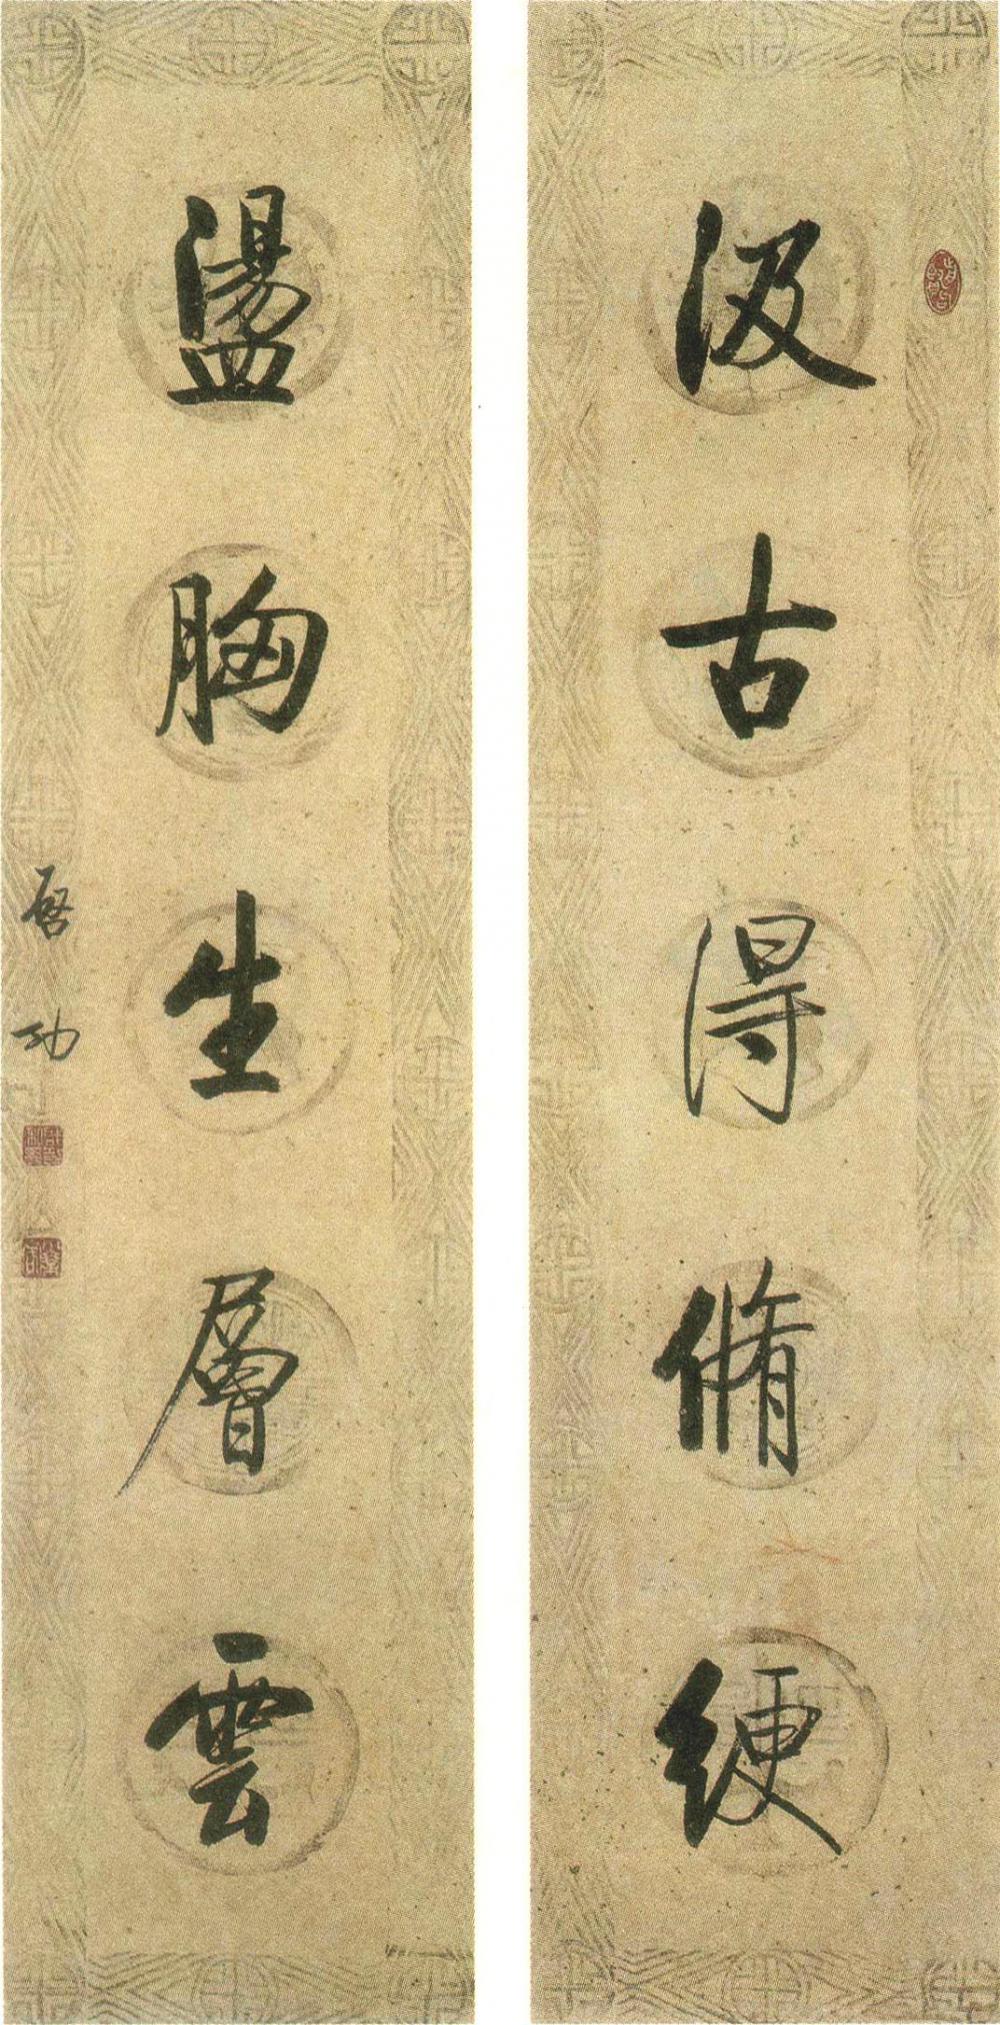 汲古得脩綆
盪胸生層雲
啓功